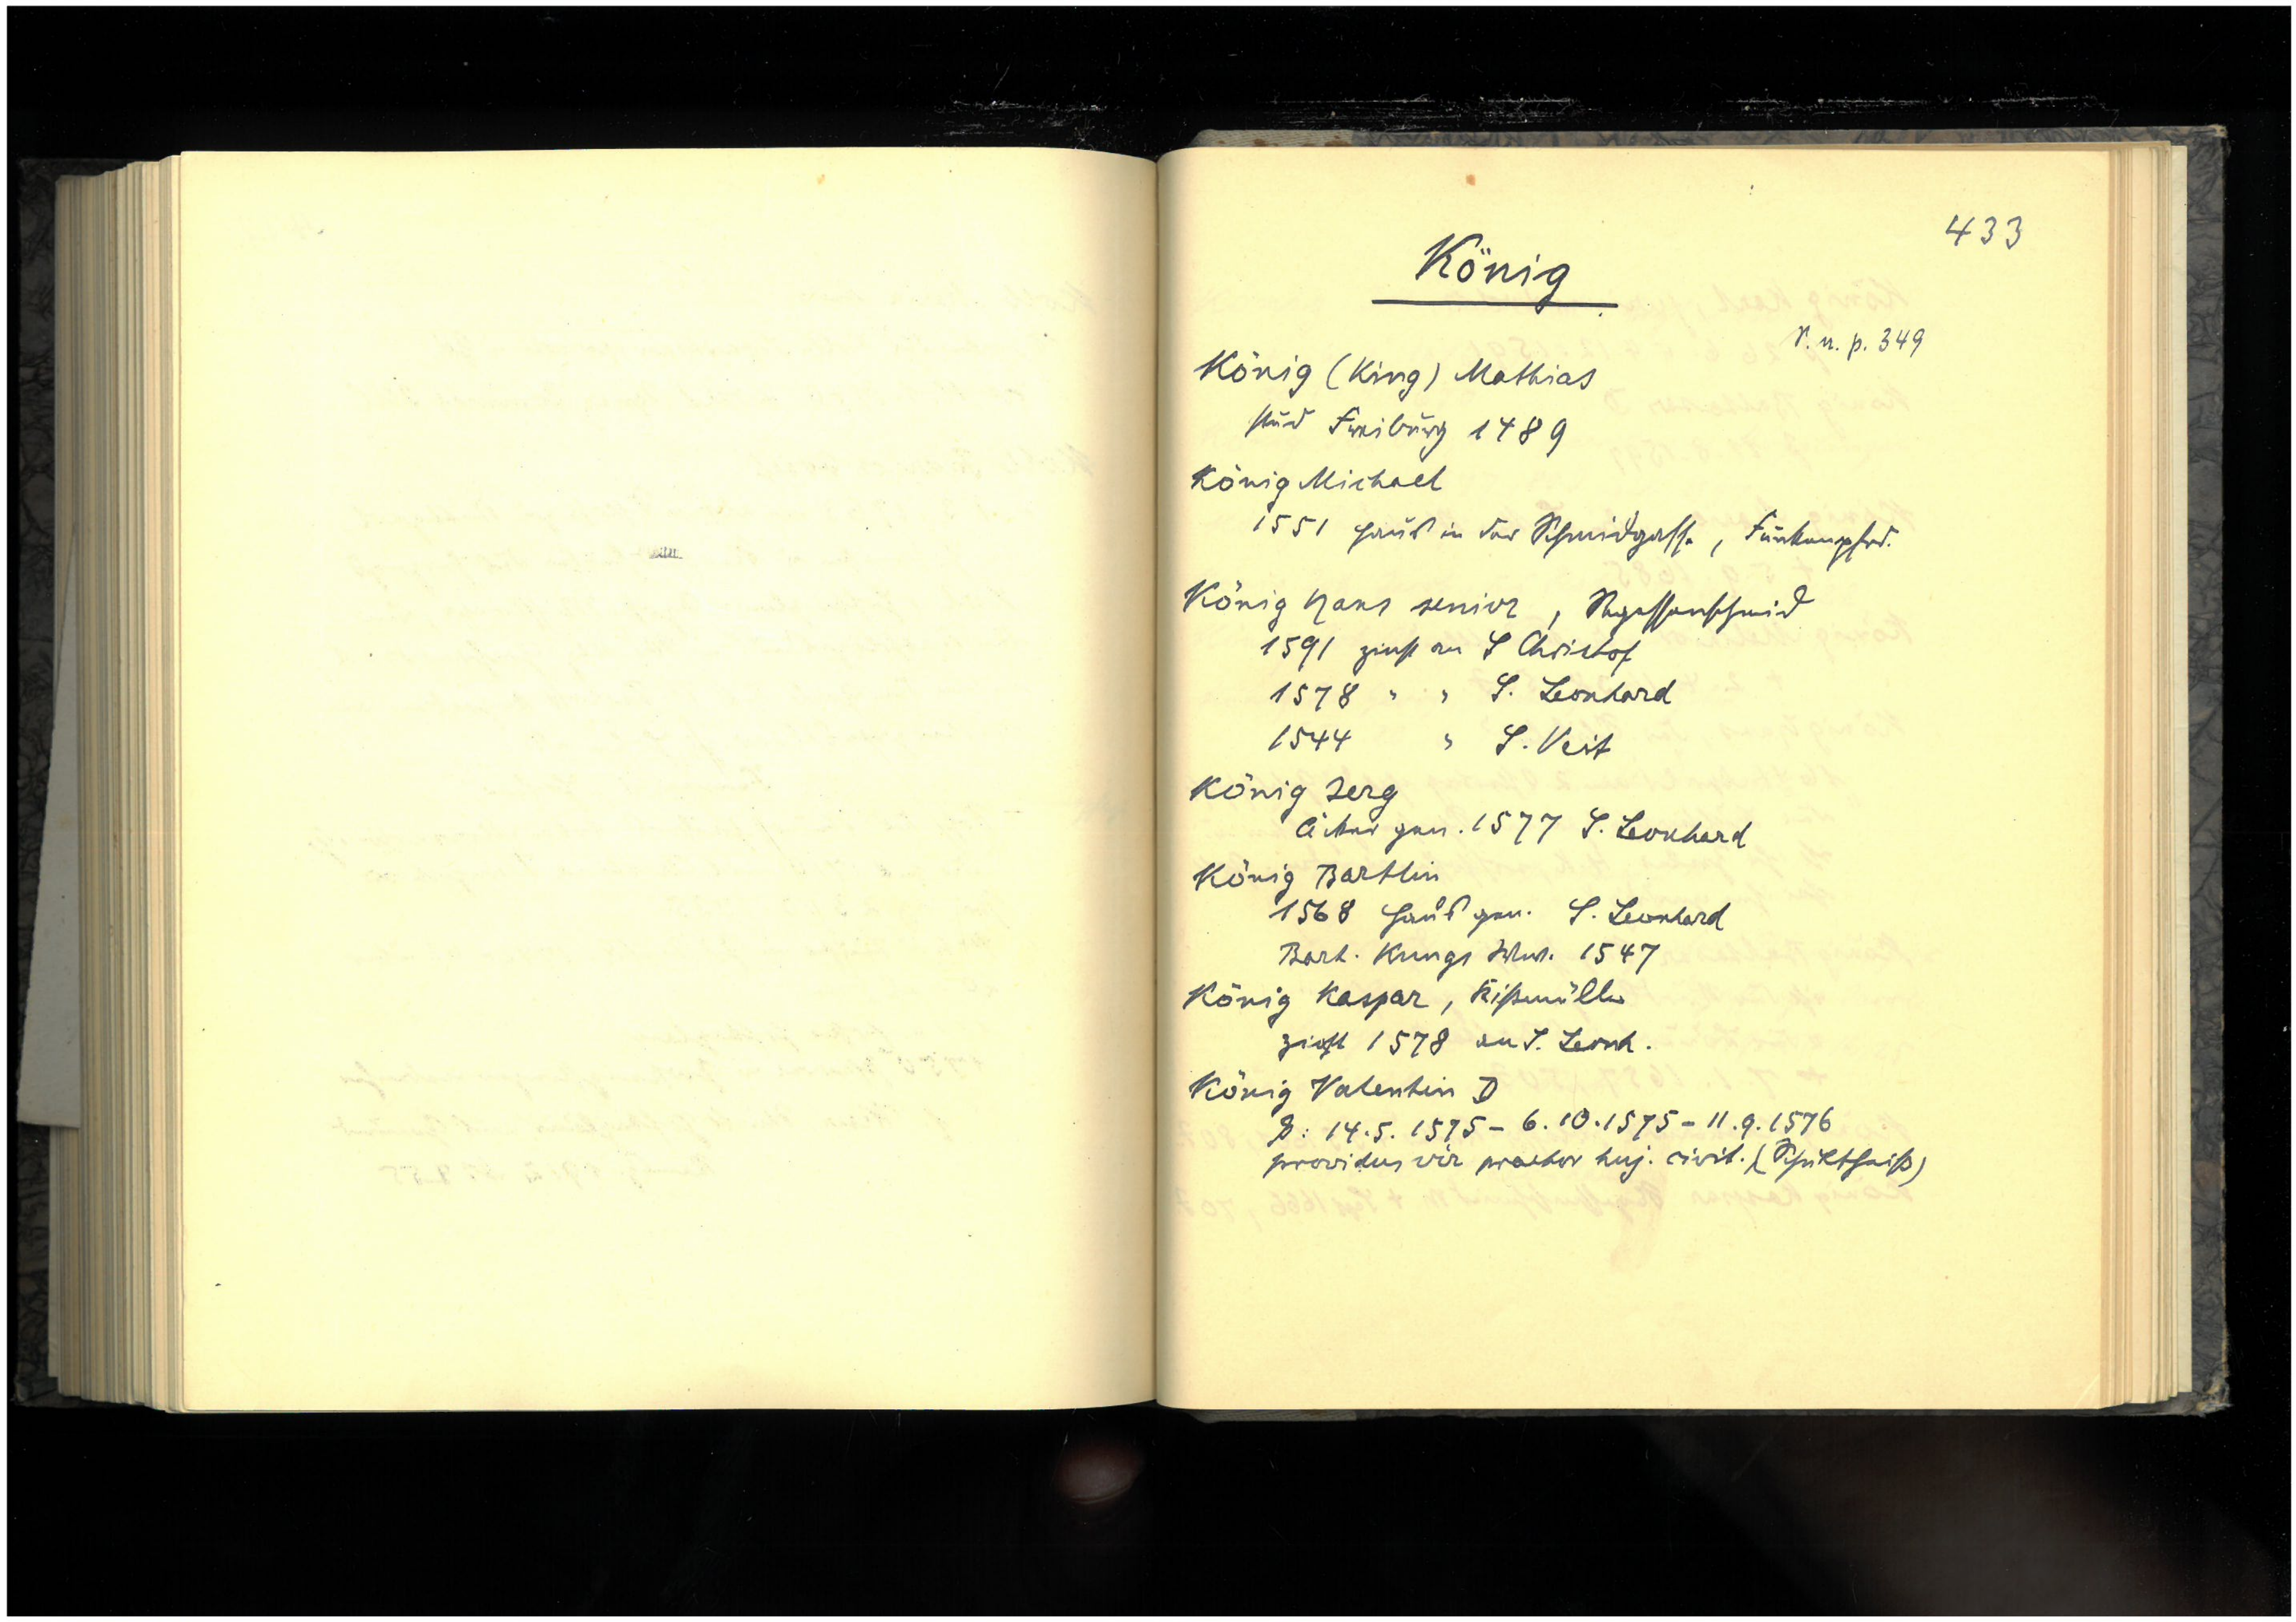 433
König
V. n. p. 349
König (King) Mathias
stud Freiburg 1489
König Michael
1551 Haus in der Schmidgasse, Funkenpfrd.
König Hans senior, Segessenschmid
1591 zinst an S Christof
1578 " " S. Leonhard
1544 " S. Veit
König Jerg
Äcker gen. 1577 S. Leonhard
König Bartlin
1568 Haus gen. S. Leonhard
Bart. Kungs Wwe. 1547
König Kaspar, Rißmüller
zinst 1578 an S. Leonh.
König Valentin D
P: 14.5.1575 - 6.10.1575 - 11.9.1576
providus vir praetor huj. civit. (Schultheiß)